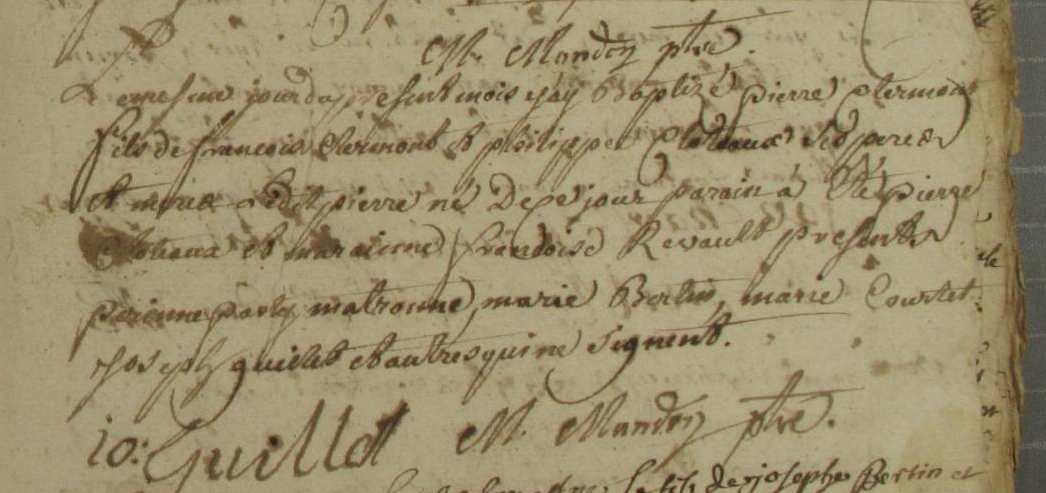 M. Mandon ptre.
Le mesme jour du present mois j'ay Baptizé pierre clermont
fils de francois Clermont et philippe Coteaux ses pere
et mere Ledit pierre né De ce jour parain a Eté pierre
Coteaux et maraienne francoise Revault presents
perinne matronne, marie Bertin, marie Courtet
joseph guillet et autres qui ne signent.
io: Guillot M. Mandon ptre.
le fils de josephe Bertin et